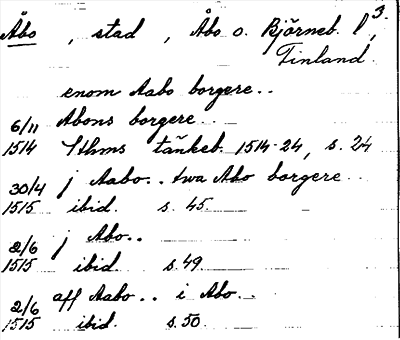 Åbo , stad , Åbo o. Björneb. l, 3.
Finland
enom Aabo borgere..
6/11 Abons borgere..
1514 Sthms tänkeb. 1514-24, s. 24
30/4 j Aabo.. twa Abo borgere
1515 ibid. s. 45
2/6 j Abo..
1515 ibid. s. 49
2/6 aff Aabo.. i Abo..
1515 ibid. s. 50